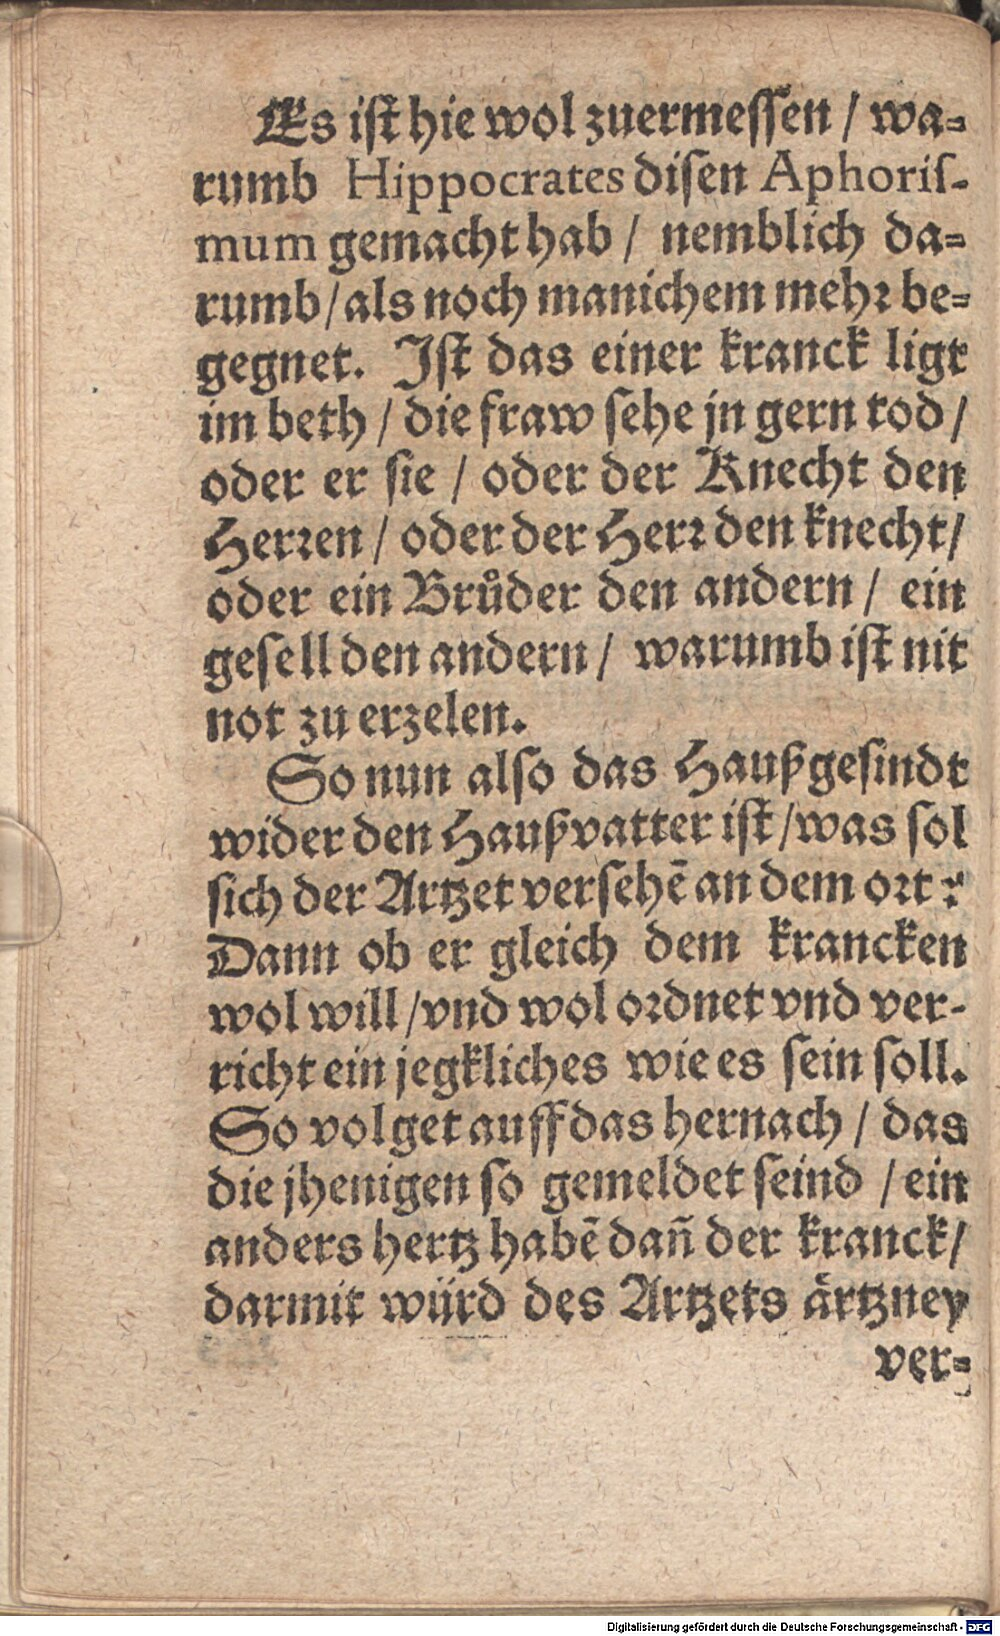 Es ist hie wol zuermessen / wa-
rumb Hippocrates disen Aphoris-
mum gemacht hab / nemblich da-
rumb / als noch manichem mehr be-
gegnet. Ist das einer kranck ligt
im beth / die fraw sehe jn gern tod /
oder er sie / oder der Knecht den
Herren / oder der Herr den knecht /
oder ein Bruͦder den andern / ein
gesell den andern / warumb ist nit
not zu erzelen.
So nun also das Haußgesindt
wider den Haußvatter ist / was sol
sich der Artzet versehē an dem ort?
Dann ob er gleich dem krancken
wol will / vnd wol ordnet vnd ver-
richt ein jegkliches wie es sein soll.
So volget auff das hernach / das
die jhenigen so gemeldet seind / ein
anders hertz habē dañ der kranck /
darmit würd des Artzets aͤrtzney
ver-
Digitalisierung gefördert durch die Deutsche Forschungsgemeinschaft - DFG